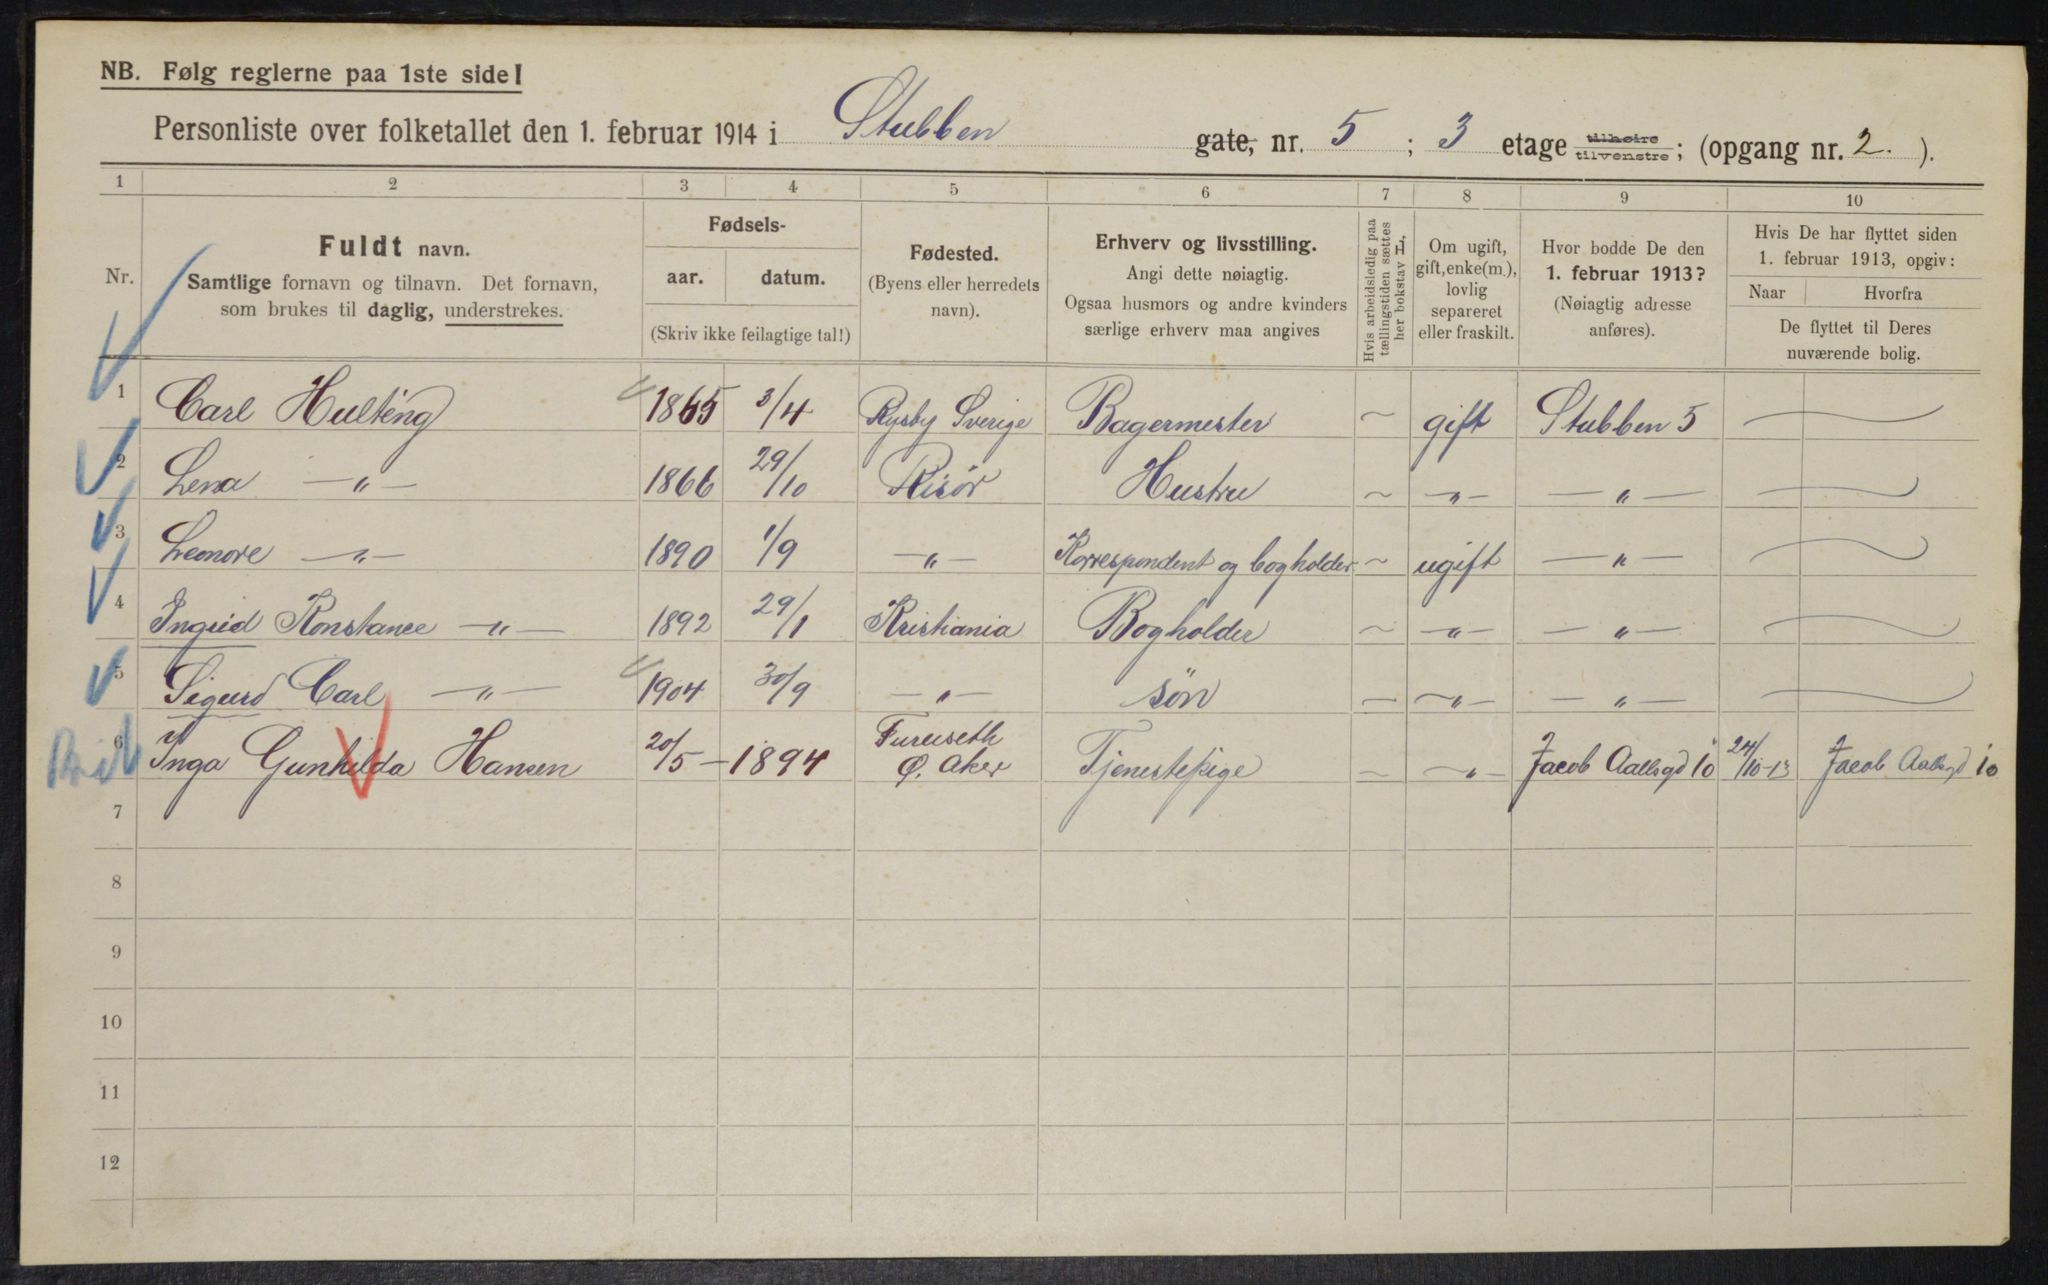 NB. Følg reglerne paa 1ste side!
Personliste over folketallet den 1. februar 1914 i Stubben gate, nr. 5 ; 3 etage tilhøire tilvenstre ; (opgang nr. 2. ).
1 2 3 4 5 6 7 8 9 10
Nr.
Fuldt navn.
Samtlige fornavn og tilnavn. Det fornavn,
som brukes til daglig, understrekes.
Fødsels-
aar. datum.
(Skriv ikke feilagtige tal!)
Fødested.
(Byens eller herredets
navn).
Erhverv og livsstilling.
Angi dette nøiagtig.
Ogsaa husmors og andre kvinders
særlige erhverv maa angives
Hvis arbeidsledig paa
tællingstiden sættes
her bokstav L.
Om ugift,
gift, enke(m.),
lovlig
separeret
eller fraskilt.
Hvor bodde De den
1. februar 1913?
(Nøiagtig adresse
anføres).
Hvis De har flyttet siden
1. februar 1913, opgiv:
Naar Hvorfra
De flyttet til Deres
nuværende bolig.
1 Carl Hulténg 1865 3/4 Rysby Sverige Bagermester ~ gift Stubben 5
2 Lena — „ — 1866 29/10 Risör Hustru ~ — „ — — „ —
3 Leonore — „ — 1890 1/9 — „ — Korrespondent og bogholder ~ ugift — „ —
4 Ingrid Konstance — „ — 1892 29/1 Kristiania Bogholder ~ — „ — — „ —
5 Sigurd Carl — „ — 1904 30/9 — „ — søn — — „ — — „ —
6 Inga Gunhilda Hansen 20/5 — 1894 Furuseth Ø. Aker Tjenestepige ~ — „ — Jacob Aallsgd 10 24/10-13 Jacob Aallsgd 10
7
8
9
10
11
12